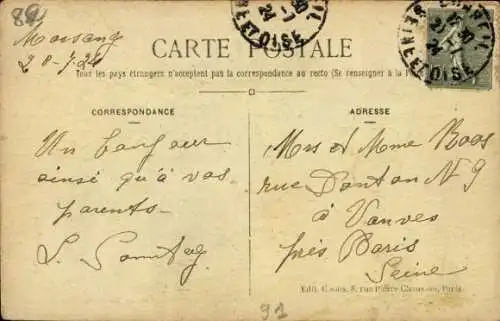 82
Morsang
20-7-24
CARTE POSTALE
Tous les pays étrangers n'acceptent pas la correspondance au recto (Se renseigner à la
CORRESPONDANCE
Un bonjour
ainsi qu'à vos
parents
L. Sonntag
ADRESSE
Mrs et Mme Roos
rue Danton N 9
à Vanves
près Paris
Seine
SEINE ET OISE
24
Paris
91